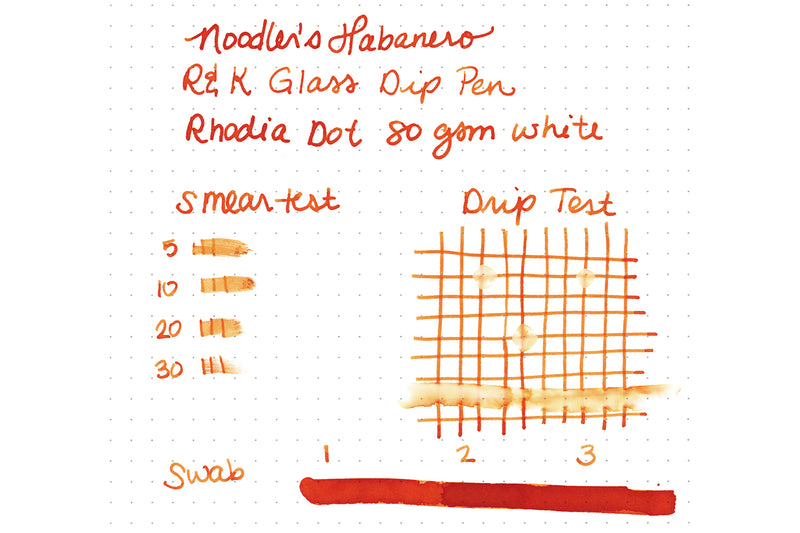 Noodler's Habanero
R&K Glass Dip Pen
Rhodia Dot 80 gsm white
Smear test
Drip Test
5
10
20
30
1 2 3
Swab